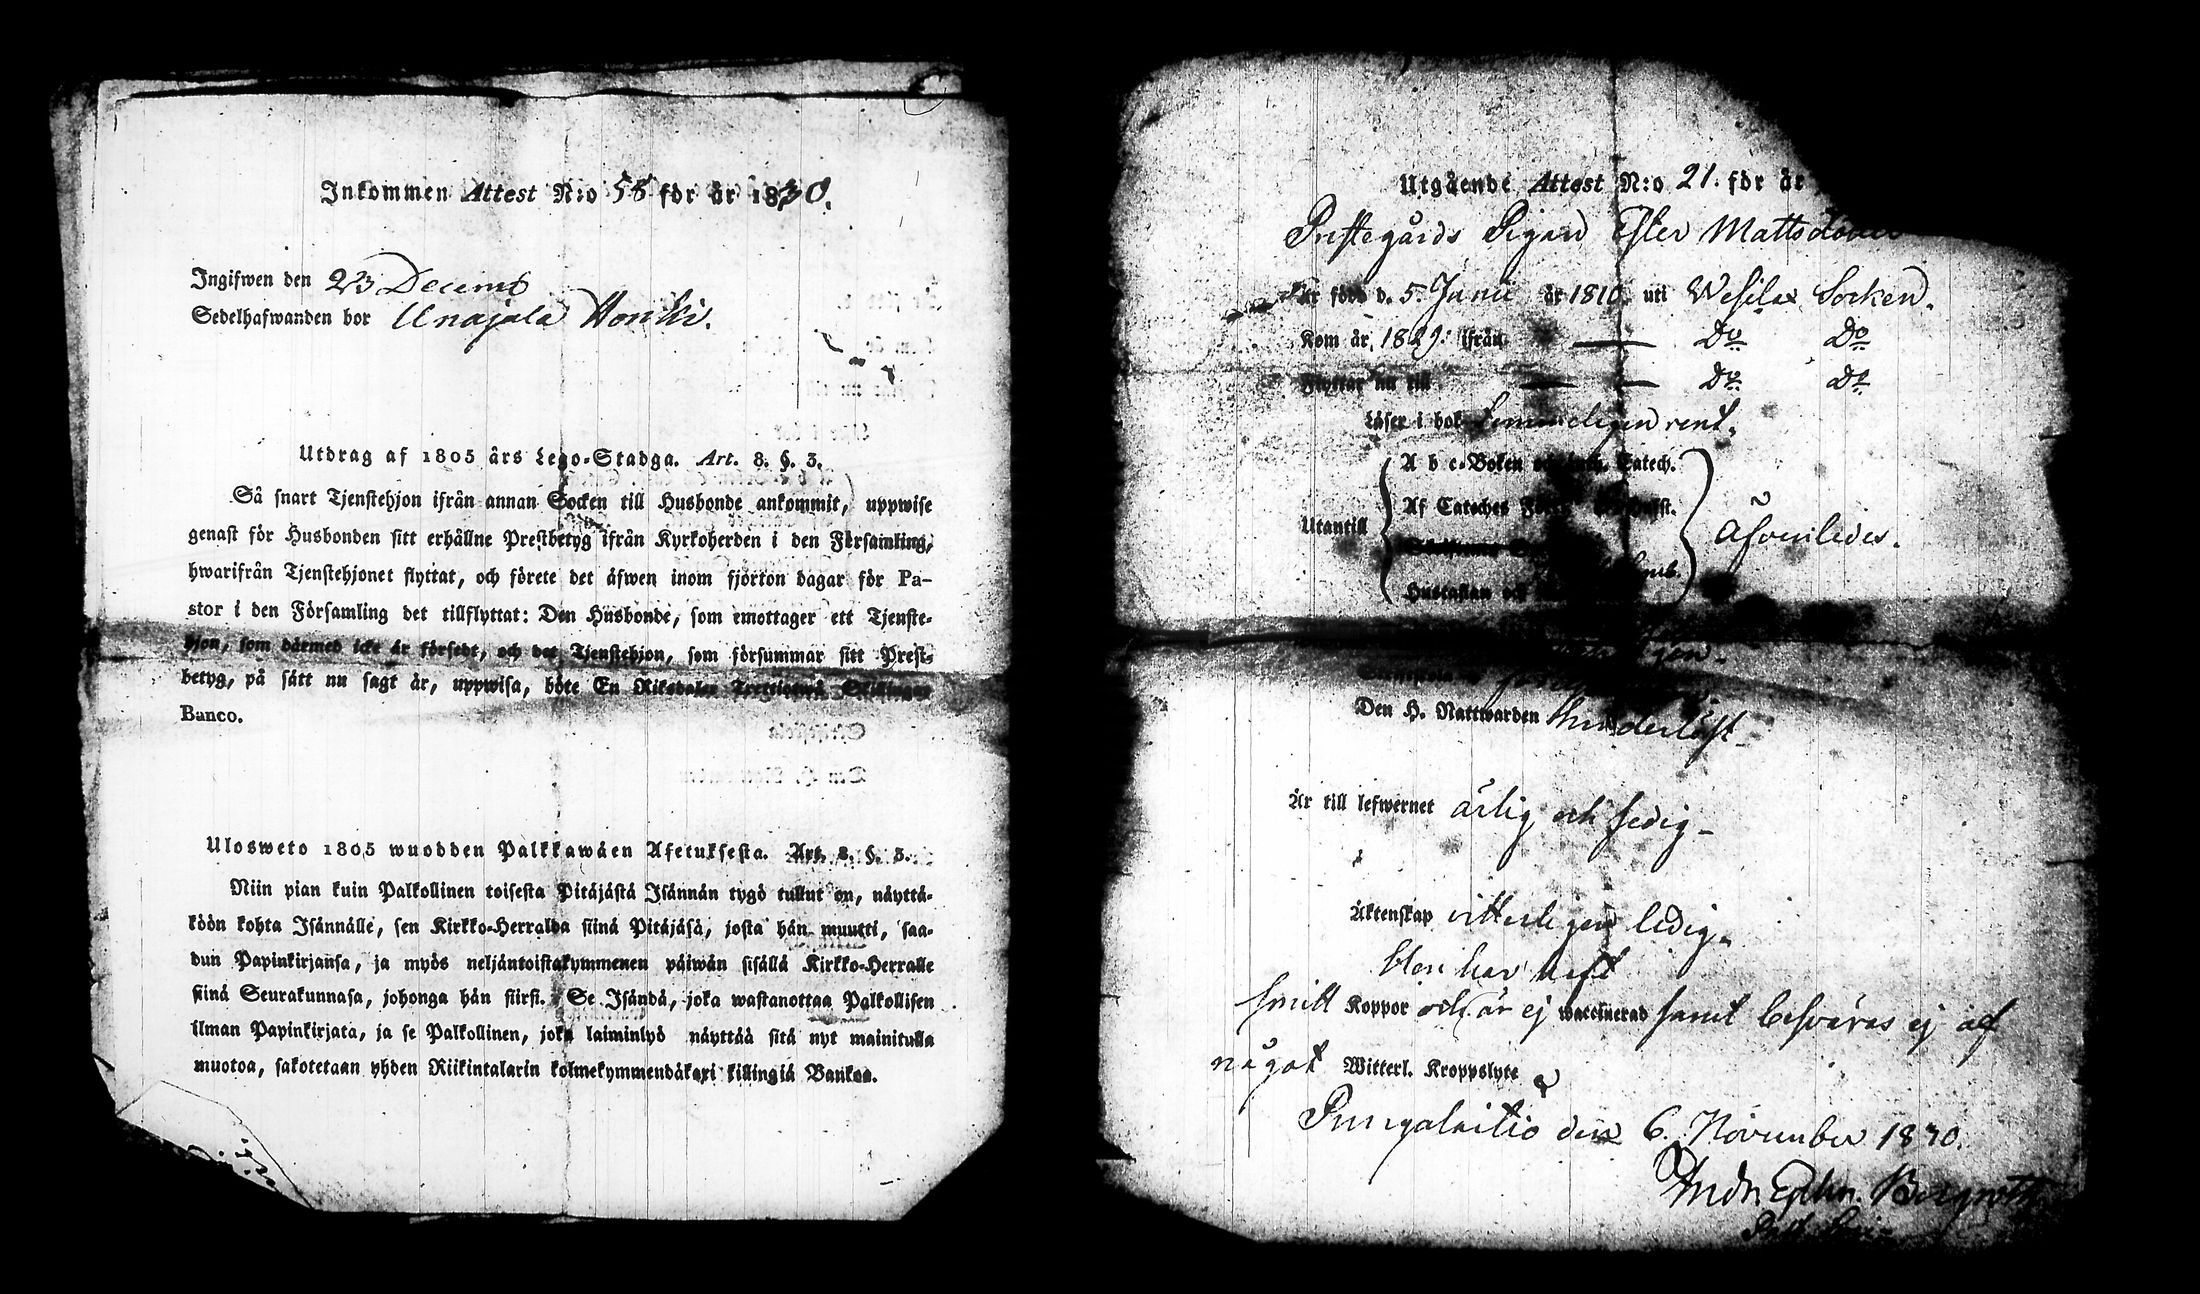 Inkommen Attest N:o 58 för år 1830.
Ingifwen den 23 Decemb
Sedelhafwanden bor Unajala Honki.
Utdrag af 1805 års Lego-Stadga. Art. 8. §. 3.
Så snart Tjenstehjon ifrån annan Socken till Husbonde ankommit, uppwise
genast för Husbonden sitt erhållne Prestbetyg ifrån Kyrkoherden i den Församling,
hwarifrån Tjenstehjonet flyttat, och förete det äfwen inom fjorton dagar för Pa-
stor i den Församling det tillflyttat: Den Husbonde, som emottager ett Tjenste-
hjon, som därmed icke är försedt, och det Tjenstehjon, som försummar sitt Prest-
betyg, på sätt nu sagt är, uppwisa, böte En Riksdaler Trettiotwå Skillingar
Banco.
Ulosweto 1805 wuodden Palkkawäen Asetuksesta. Art. 8. §. 3.
Niin pian kuin Palkollinen toisesta Pitäjästä Isännän tygö tullut on, näyttä-
köön kohta Isännälle, sen Kirkko-Herralda siinä Pitäjäsä, josta hän muutti, saa-
dun Papinkirjansa, ja myös neljäntoistakymmenen päiwän sisällä Kirkko-Herralle
siinä Seurakunnasa, johonga hän siirsi. Se Isändä, joka wastanottaa Palkollisen
ilman Papinkirjata, ja se Palkollinen, joka laiminlyö näyttää sitä nyt mainitulla
muotoa, sakotetaan yhden Riikintalarin kolmekymmendäkaxi killingiä Bankoa.
Utgående Attest N:o 21. för år
Prestegårds Pigan Ester Mattsdotter
Är född d. 5. Junii år 1810. uti Wesilax Socken.
Kom år 1829. ifrån — Do Do
Flyttar nu till — — Do Do
Läser i bok rent.
Utantill
A b c-Boken och Luth. Catech.
Af Cateches
Hustaflan och
Äfvenledes.
Den H. Nattwarden
Är till lefwernet ärlig och sedig —
Äktenskap vitterligen ledig.
Hon har haft
Koppor och är ej waccinerad samt besväras ej af
något Witterl. Kroppslyte
Pungalaitio den 6. November 1830.
Bergroth